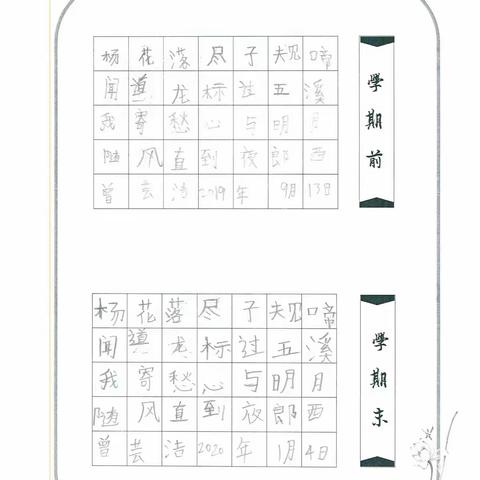 杨花落尽子规啼
闻道龙标过五溪
我寄愁心与明月
随风直到夜郎西
曾芸洁2019年9月13日
學期前
杨花落尽子规啼
闻道龙标过五溪
我寄愁心与明月
随风直到夜郎西
曾芸洁2020年1月4日
學期末